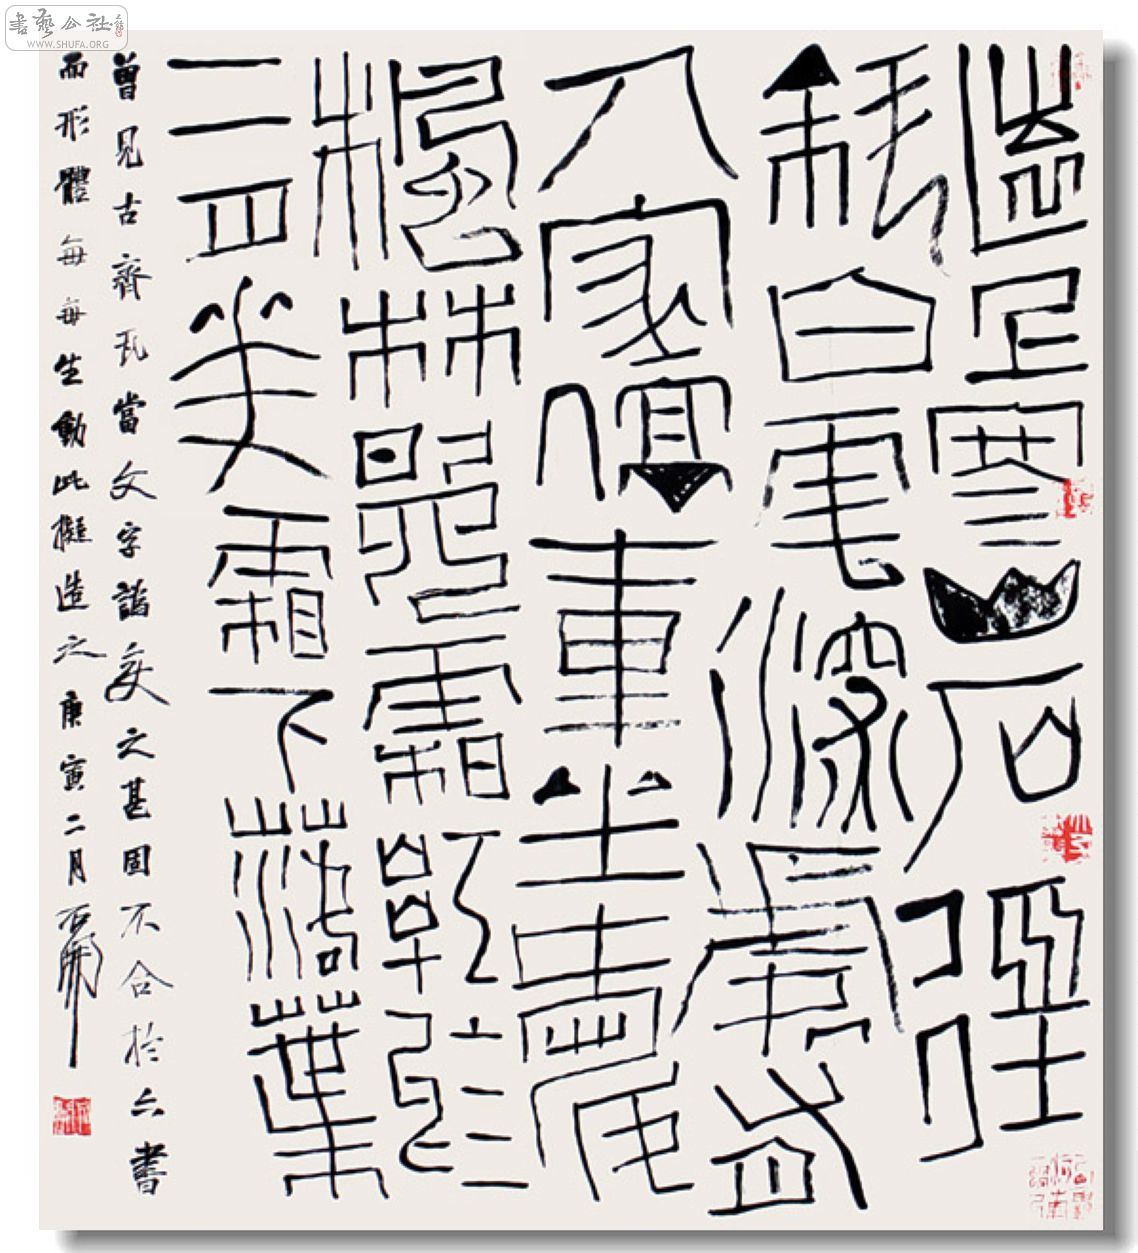 書藝公社
WWW.SHUFA.ORG
遠上寒山石徑
斜白雲深處有
人家停車坐愛
楓林晚霜
二月花霜下落葉
曾見古齊瓦當文字之甚固不合於六書
而形體每每生動此擬造之庚寅二月石開